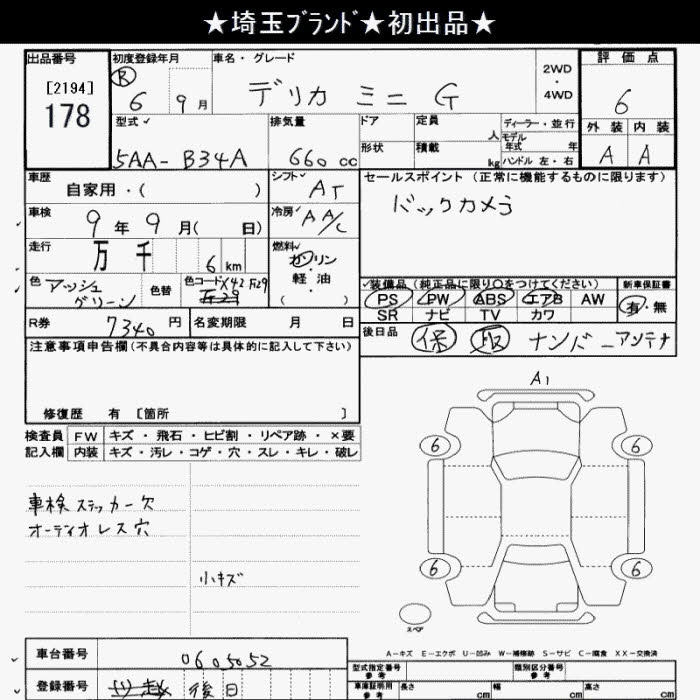 ★埼玉ﾌﾞﾗﾝﾄﾞ★初出品★
出品番号
[2194]
178
初度登録年月
R 6 9 月
車名・グレード
デリカ ミニ G
2WD
・
4WD
評価点
6
外装 内装
A A
型式
5AA-B34A
排気量
660 cc
ドア
形状
定員 人
積載 kg
ディーラー・並行
モデル
年式 年
ハンドル 左・右
車歴
自家用・( )
シフト
AT
セールスポイント (正常に機能するものに限ります)
バックカメラ
車検
9 年 9 月( 日)
冷房
AA/C
走行
万 千 6 km
燃料
ガソリン
・
軽・油
( )
色 アッシュ
グリーン
色替
色コード X42 F29
装備品 (純正品に限り〇をつけてください)
PS PW ABS エアB AW
SR ナビ TV カワ
新車保証書
有・無
R券
7340 円
名変期限 月 日
後日品
保 取 ナンバーアンテナ
注意事項申告欄(不具合内容等は具体的に記入して下さい)
修復歴 有 [箇所 ]
検査員 FW キズ・飛石・ヒビ割・リペア跡・×要
記入欄 内装 キズ・汚レ・コゲ・穴・スレ・キレ・破レ
車検ステッカー欠
オーディオレス穴
小キズ
A1
6 6
6 6
スペア
A-キズ E-エクボ U-凹み W-補修跡 S-サビ C-腐食 XX-交換済
車台番号
0605052
登録番号
後日
型式指定番号
参考
類別区分番号
参考
車庫証明用
参考
長さ cm
幅 cm
高さ cm